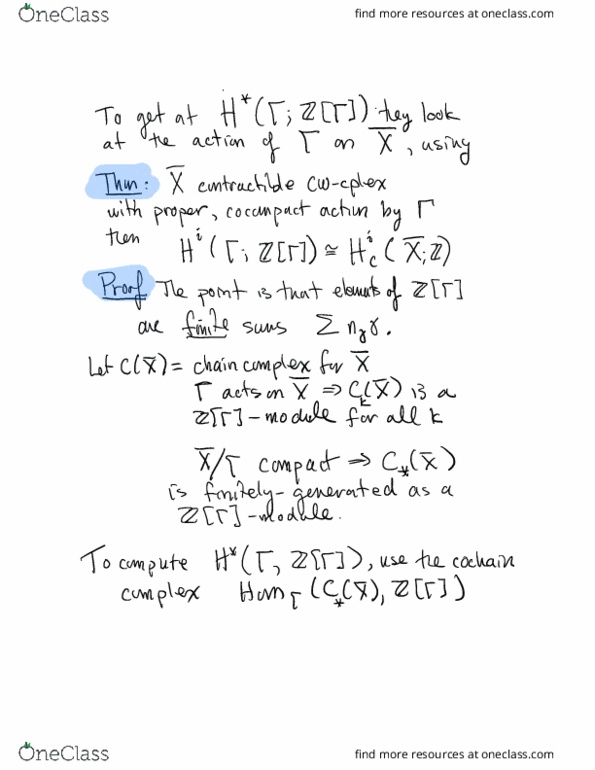 OneClass
find more resources at oneclass.com
To get at H*(Γ; ℤ[Γ]) they look
at the action of Γ on X̅, using
Thm: X̅ contractible CW-cplex
with proper, cocompact action by Γ
then Hⁱ(Γ; ℤ[Γ]) ≅ Hⁱ_c(X̅; ℤ)
Proof The point is that elements of ℤ[Γ]
are finite sums Σ n_γ γ.
Let C(X̅) = chain complex for X̅
Γ acts on X̅ ⇒ C_k(X̅) is a
ℤ[Γ]-module for all k
X̅/Γ compact ⇒ C_*(X̅)
is finitely-generated as a
ℤ[Γ]-module.
To compute H*(Γ, ℤ[Γ]), use the cochain
complex Hom_Γ(C_*(X̅), ℤ[Γ])
OneClass
find more resources at oneclass.com